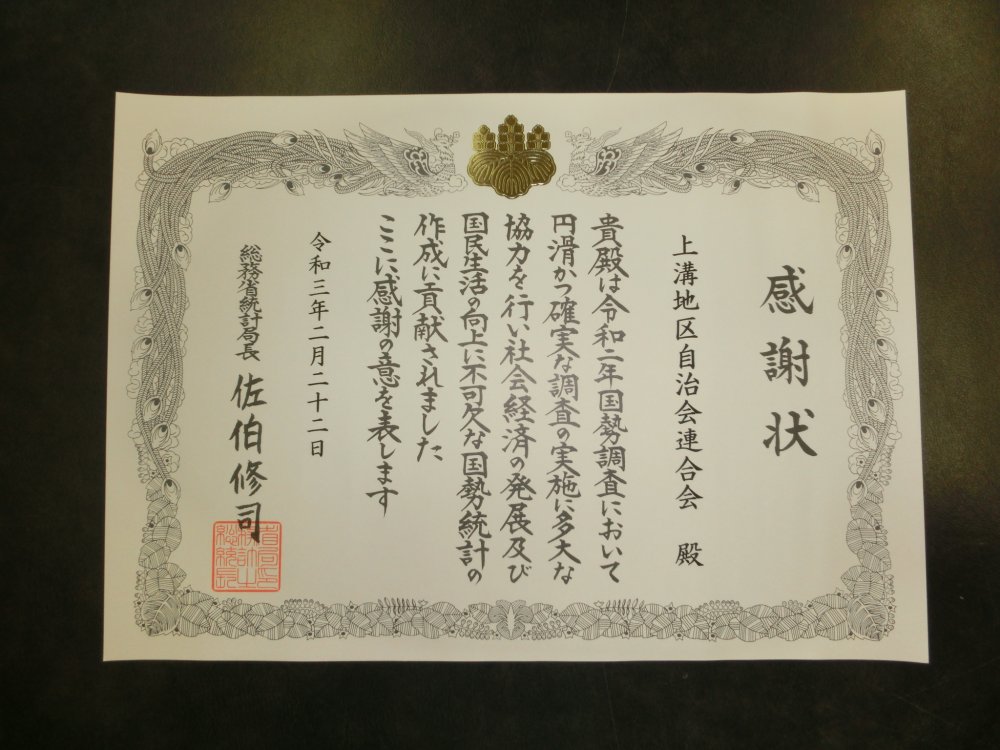 感謝状
上溝地区自治会連合会 殿
貴殿は令和二年国勢調査において
円滑かつ確実な調査の実施に多大な
協力を行い社会経済の発展及び
国民生活の向上に不可欠な国勢統計の
作成に貢献されました
ここに感謝の意を表します
令和三年二月二十二日
総務省統計局長 佐伯修司